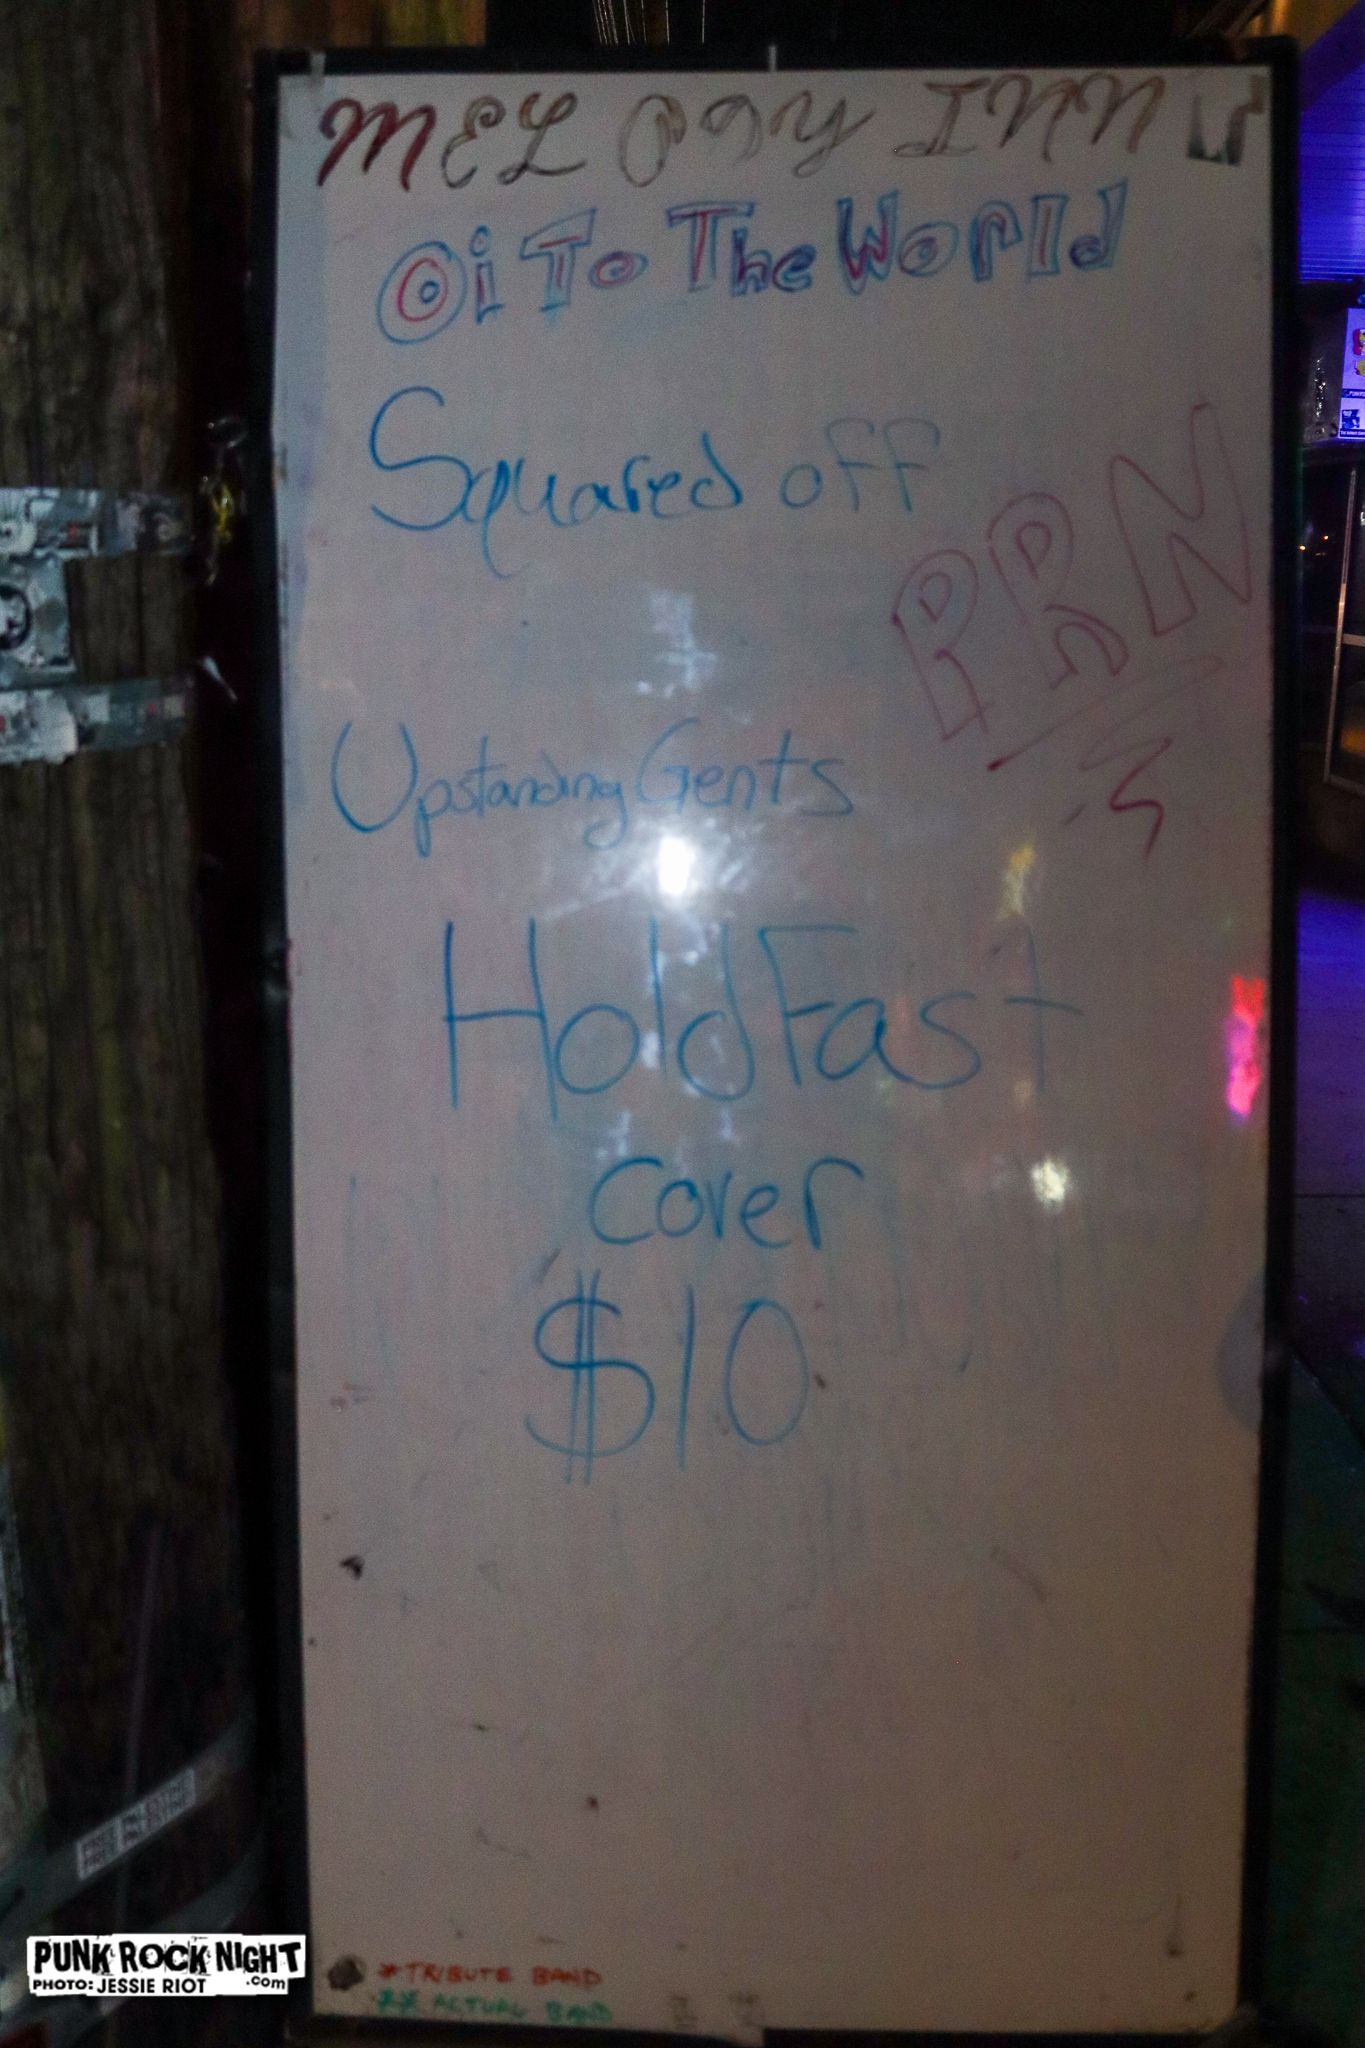 MELODY INN
Oi To The World
Squared off
PRN
Upstanding Gents
Hold Fast
cover
$10
FREE PALESTINE
FREE PALESTINE
*TRIBUTE BAND
** ACTUAL BAND
PUNK ROCK NIGHT
PHOTO: JESSIE RIOT .com